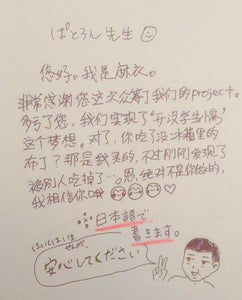 ぱとろん 先生
您好。我是麻衣。
非常感谢您这次众筹了我们的project。
多亏了您，我们实现了“开设学生寮”
这个梦想。对了，你吃了没冰箱里的
布丁？那是我买的，不过刚刚发现了
被别人吃掉了…。恩，绝对不是你偷的，
我相信你哦
日本語で
書きます。
安心してください